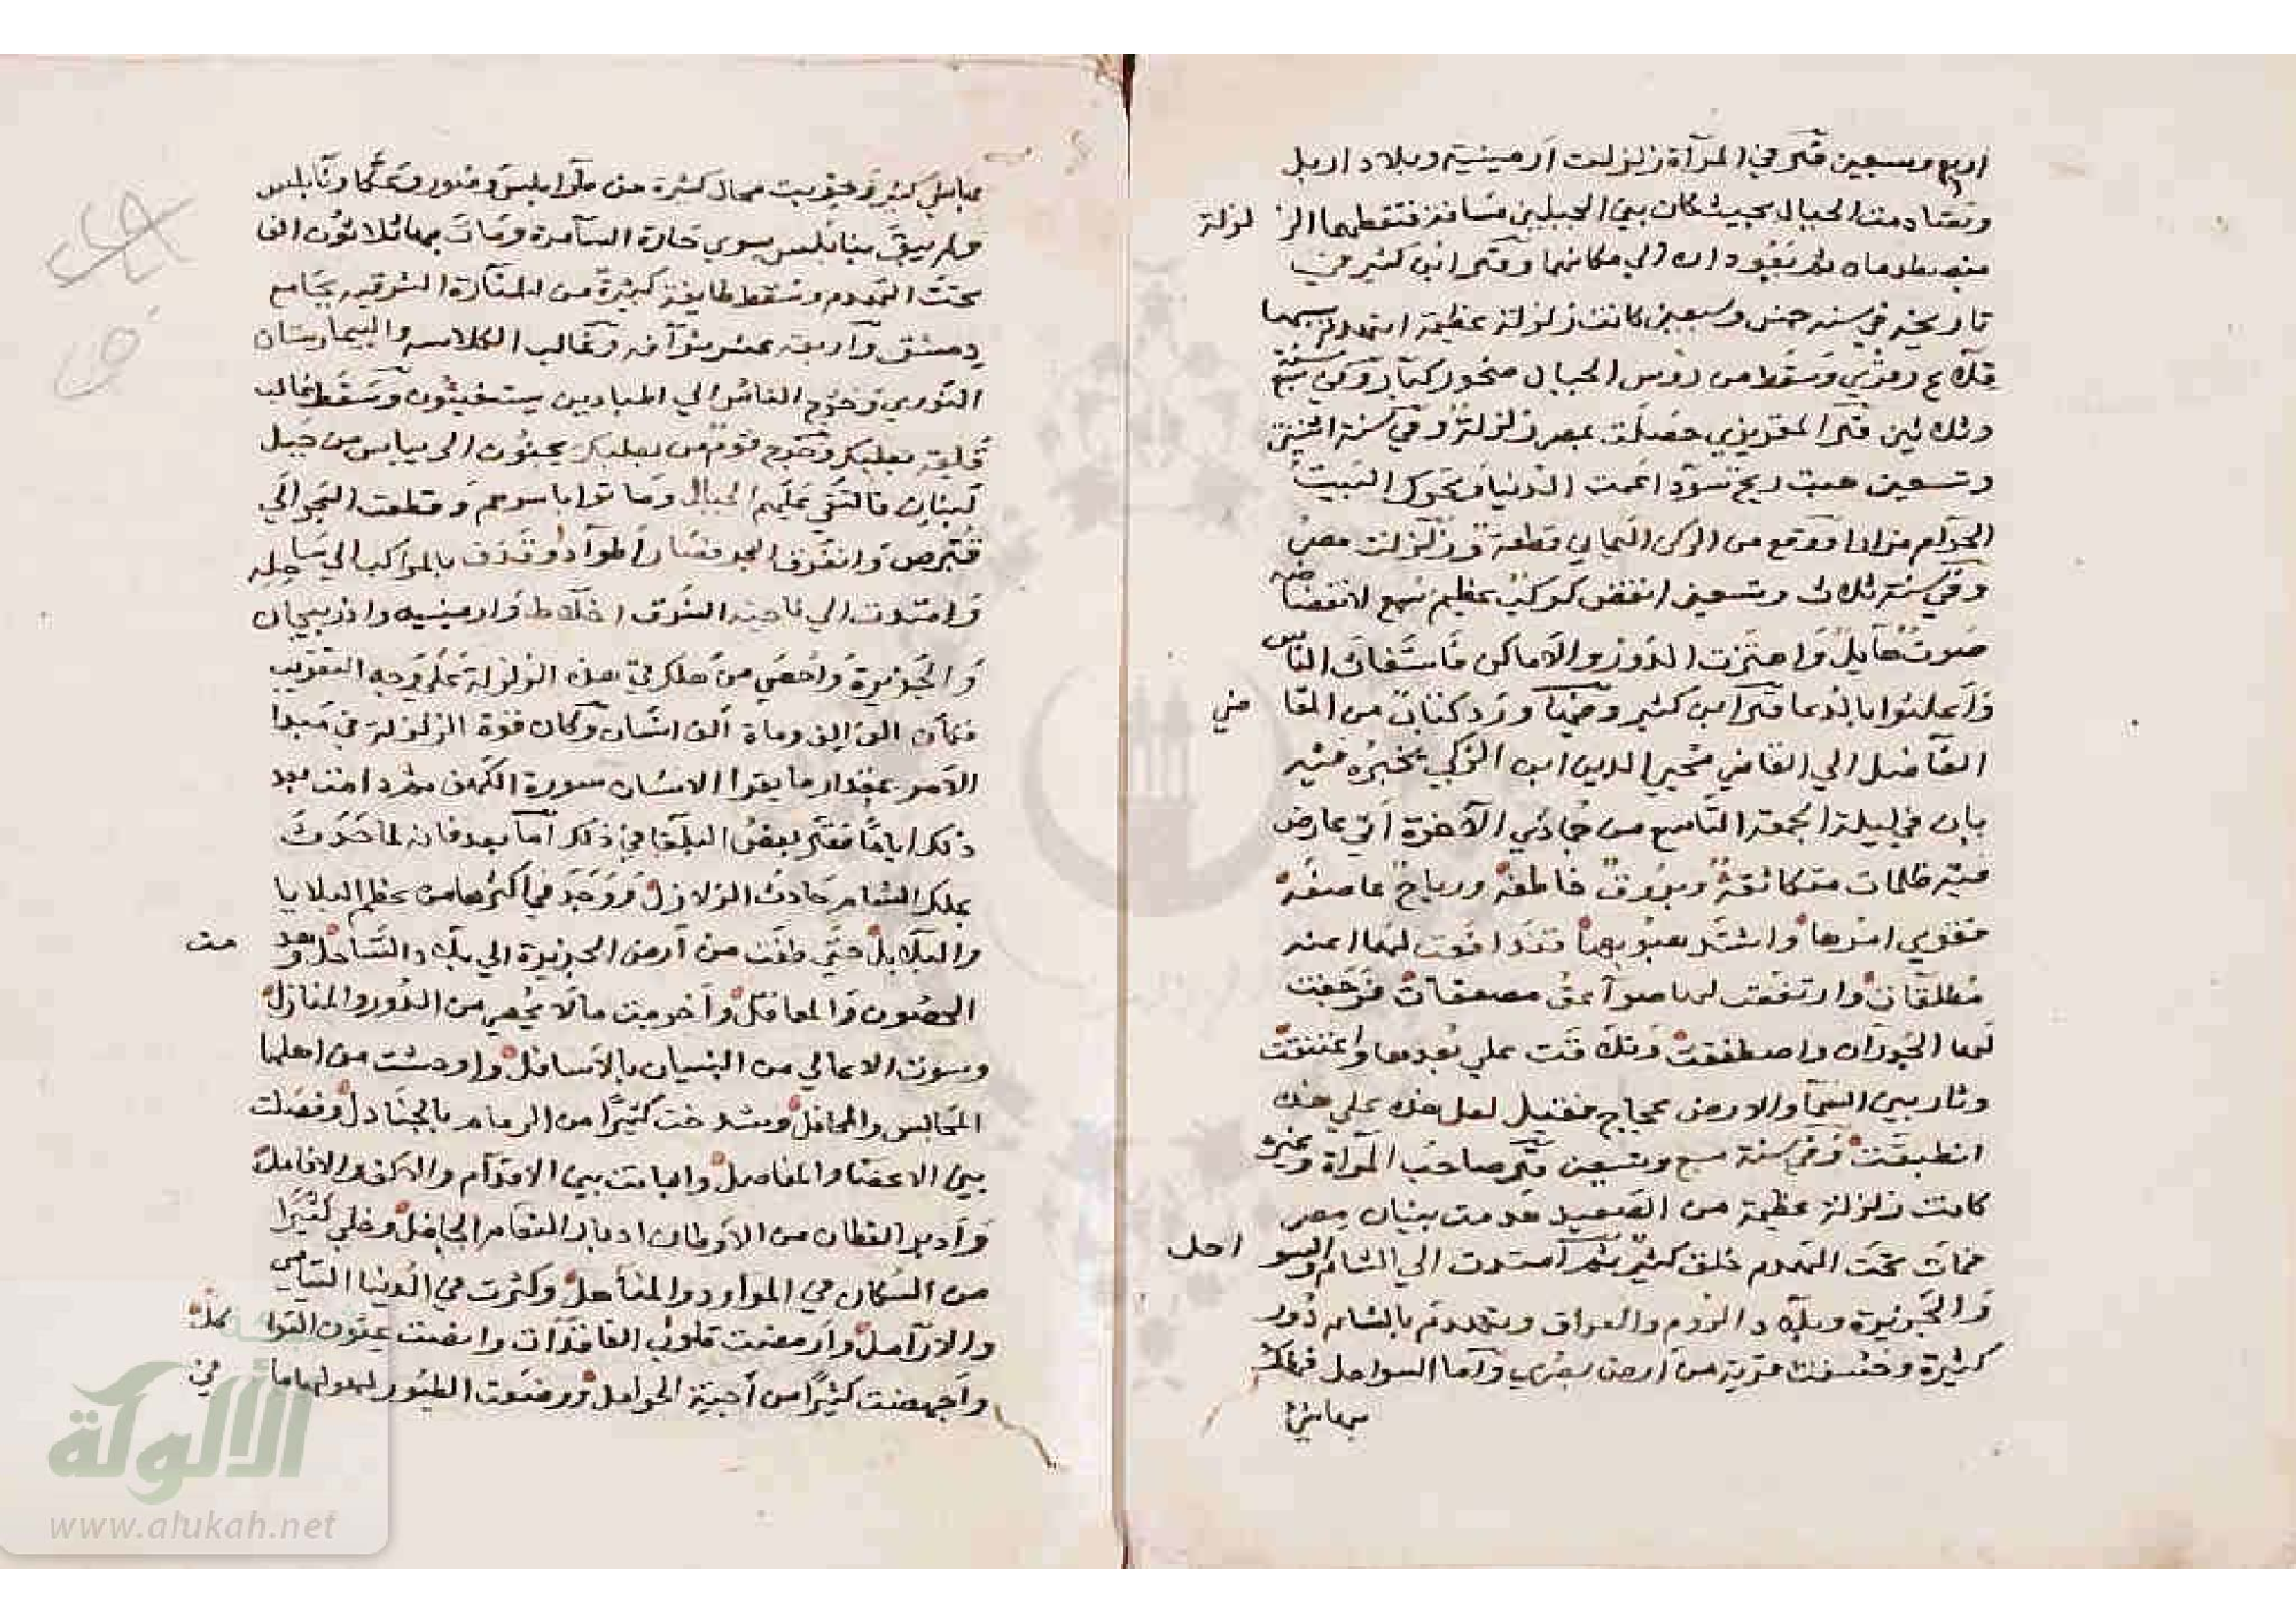 اربع وسبعين قال في المرآة زلزلت ارمينية وبلاد اربل
وتصادمت الجبال بحيث كان بين الجبلين مسافة فتقطعها الزلزلة
فيصطدمان ثم يعودان الي مكانهما وقال ابن كثير في
تاريخه في سنة خمس وسبعين كانت زلزلة عظيمة انهدم بسببها
قلاع وقري وسقط من روس الجبال صخور كبار وفي سنة
وثمانين قال المقريزي حصلت بمصر زلزلة وفي سنة اثنتين
وتسعين هبت ريح سودا عمت الدنيا وتحرك البيت
الحرام مرارا ووقع من الركن اليماني قطعة وزلزلت مصر
وفي سنة ثلاث وتسعين انقض كوكب عظيم سمع لانقضاضه
صوت هايل واهتزت الدور والاماكن فاستغاث الناس
واعلنوا بالدعا قال ابن كثير وفيها ورد كتاب من القاضي
الفاضل الي القاضي محيي الدين ابن الزكي يخبره فيه
بان في ليلة الجمعة التاسع من جمادي الاخرة اتي عارض
فيه ظلمات متكاثفة وبروق خاطفة ورياح عاصفة
فقوي امرها واشتد هبوبها فتدافعت لها اعنة
مطلقات وارتفعت لها صواعق مصعقات فرجفت
لها الجدران واصطفقت وتلاقت علي بعدها واعتنقت
وثار بين السما والارض عجاج فقيل لعل هذه علي هذه
انطبقت وفي سنة سبع وتسعين قال صاحب المرآة وغيره
كانت زلزلة عظيمة من الصعيد هدمت بنيان مصر
فمات تحت الهدم خلق كثير ثم امتدت الي الشام والسواحل
والجزيرة وبلاد الروم والعراق وتهدم بالشام دور
كثيرة وخسفت قرية من ارض بصري واما السواحل فهلك
بها شئ
كثير وخربت محال كثيرة من طرابلس وصور وعكا ونابلس
ولم يبق بنابلس سوي حارة السامرة ومات بها ثلاثون الفا
تحت الهدم وسقط طايفة كثيرة من المنارة الشرقية بجامع
دمشق واربعة عشر شرافة وغالب الكلاسه والبيمارستان
النوري وخرج الناس الي الميادين يستغيثون وسقط غالب
قلعة بعلبك وخرج قوم من بعلبك يجنون الريباس من جبل
لبنان فالتقي عليهم الجبال وماتوا باسرهم وقطعت البحر الي
قبرص وانفرق البحر فصار اطوادا وقذف بالمراكب الي ساحله
وامتدت الي ناحية الشرق اخلاط وارمينيه واذربيجان
والجزيرة واحصي من هلك في هذه الزلزلة علي وجه التقريب
فكان الف الف وماة الف انسان وكان قوة الزلزلة في مبدا
الامر بمقدار ما يقرا الانسان سورة الكهف ثم دامت بعد
ذلك اياما فقال بعض البلغا في ذلك اما بعد فانه لما حدث
بملك الشام حادث الزلازل ووجد في اكثرها من عظم البلايا
والبلابل حتي طفت من ارض الجزيرة الي بلاد الساحل وهدمت
الحصون والمعاقل واخربت مالا يحصي من الدور والمنازل
وسوت الاعالي من البنيان بالاسافل واوحشت من اهلها
المجالس والمحافل وشدخت كثيرا من الرمام بالجنادل وفصلت
بين الاعضا والمفاصل وابانت بين الاقدام والاكف والانامل
وادبر القطان من الاوطان ادبار النعام الجافل وخلي كثيرا
من السكان من الموارد والمناهل وكثرت في الدنيا اليتامي
والارامل وارمضت قلوب الفاقدات وابضت عيون الثواكل
واجهضت كثيرا من اجنة الحوامل ووضعت الطيور لهولها ما في
شبكة
الألوكة
www.alukah.net